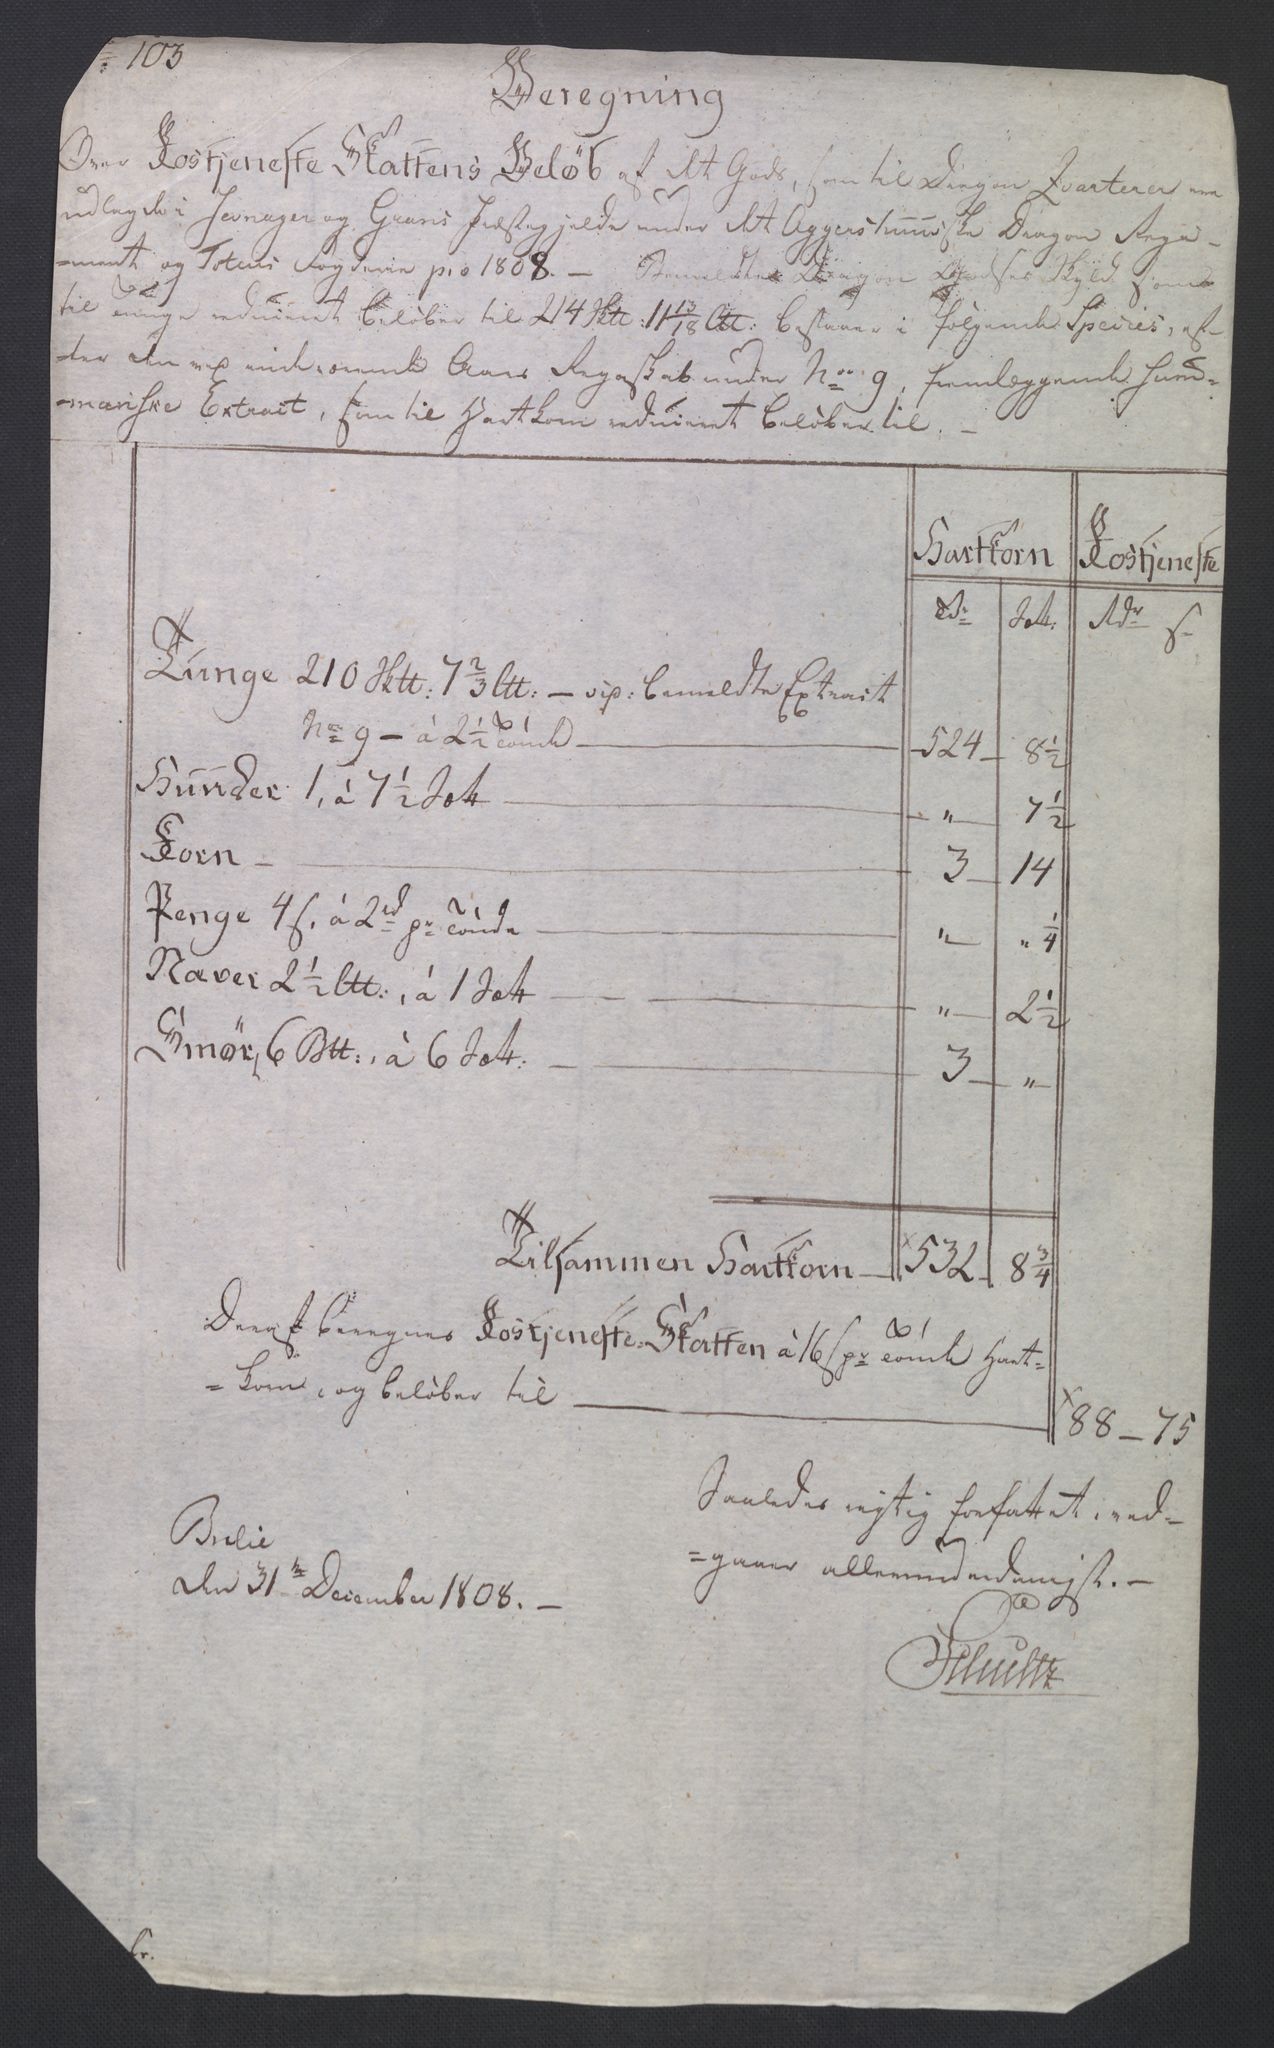 103
Beregning
Over Rostjeneste Skattens Beløb af det Gods, som til Dragon Qvarterer ere
udlagde i Jevnager og Grans Præstegjelde under det Aggershuusiske Dragon Regi-
-ment og Totens Fogderie pro 1808. — Bemeldte Dragon Godses Skyld som
til tunge reduceret beløber til 214 Sktt: 11 13/18 Ltt: bestaaer i følgende Species, ef-
-ter den ved indeværende Aars Regnskab under No 9, fremlæggende Sum-
-mariske Extract, som til Hartkorn reduceret beløber til. —
Hartkorn Rostjeneste
Tdr Sæt: Rdr s
Tunge 210 Sktt: 7 2/3 Ltt: — vid: bemeldte Extract
No 9 — à 2 1/2 Tönde 524 8 1/2
Hunder 1, à 7 1/2 Sæt „ 7 1/2
Korn — 3 14
Penge 4 s, à 2 rd pr Tönde „ „ 1/4
Naver 2 1/2 Ltt:, à 1 Sæt „ 2 1/2
Smør, 6 Btt:, à 6 Sæt: 3 „
Tilsammen Hartkorn 532 8 3/4
Deraf beregnes Rostjeneste-Skatten à 16 s pr Tönde Hart-
-korn, og beløber til 88 — 75
Saaledes rigtig forfattet, ved-
-gaaer allerunderdanigst. —
Brelie
den 31te December 1808. —
Schultz